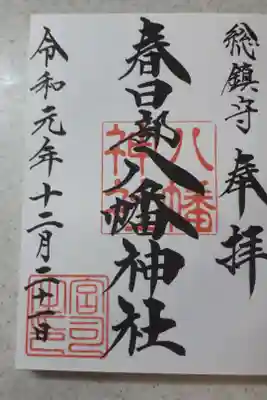 総鎮守 奉拝
春日部八幡神社
令和元年十二月二十一日
八幡
宮司之印